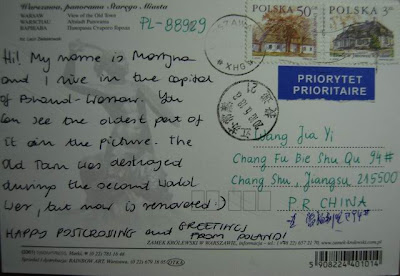 Warszawa, panorama Starego Miasta
WARSAW View of the Old Town
WARSCHAU Altstadt Panorama
ВАРШАВА Панорама Старого Города
PL-88929
Hi! My name is Martyna
and I live in the capital
of Poland - Warsaw. You
can see the oldest part of
it on the picture. The
Old Town was destroyed
during the second World
War, but now is renovated :)
HAPPY POSTCROSSING and GREETINGS
FROM POLAND!
POLSKA 50 gr
POLSKA 3
PRIORYTET
PRIORITAIRE
Wang Jia Yi
Chang Fu Bie Shu Qu 94#
Chang Shu, Jiangsu 215500
P.R. CHINA
94#
ZAMEK KRÓLEWSKI W WARSZAWIE
5908224401014